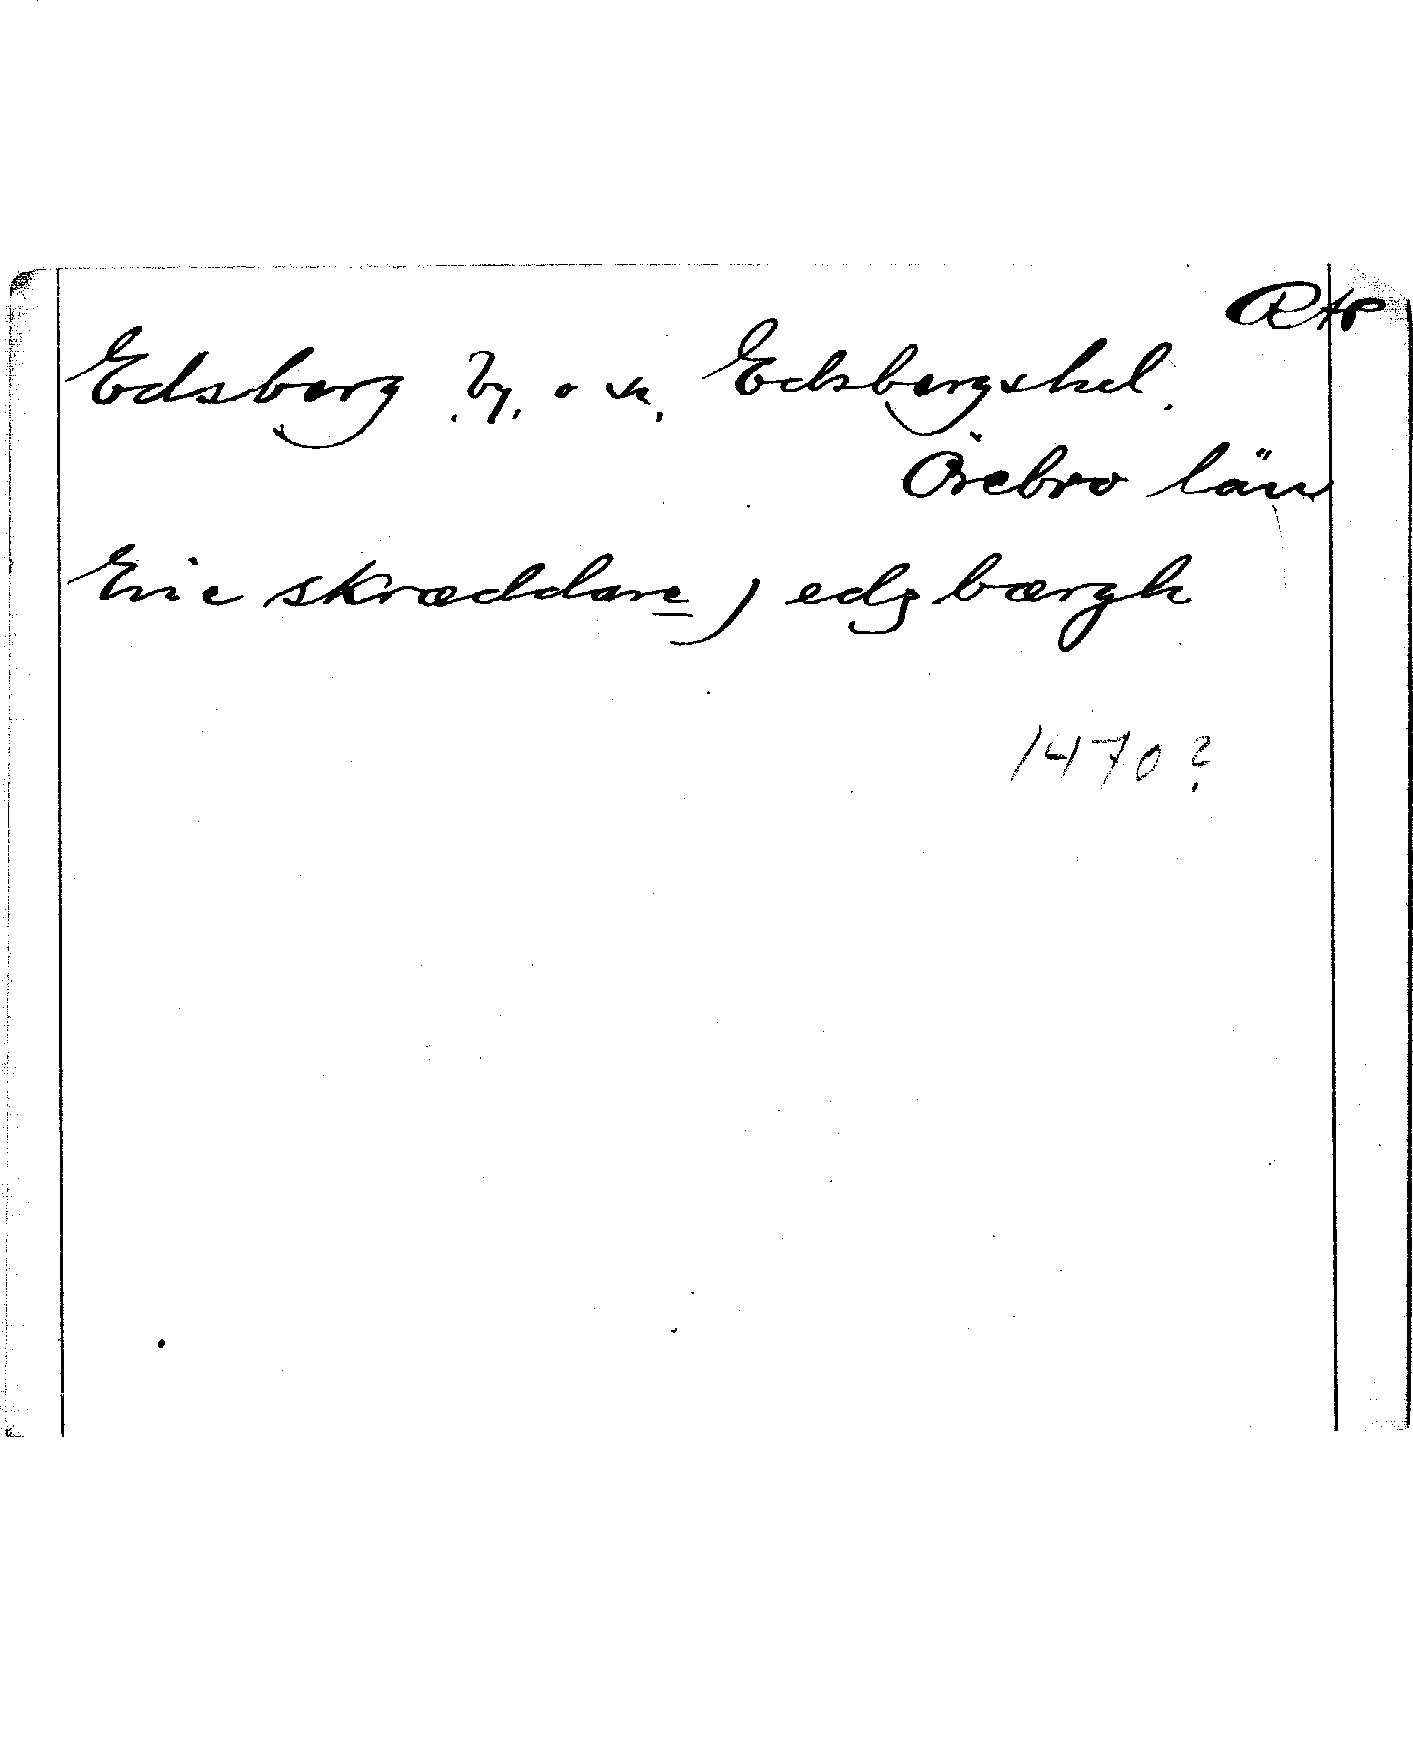 RAP
Edsberg by. o sn. Edsbergs hd.
Örebro län
Eric skræddare j edzbærgh
1470?